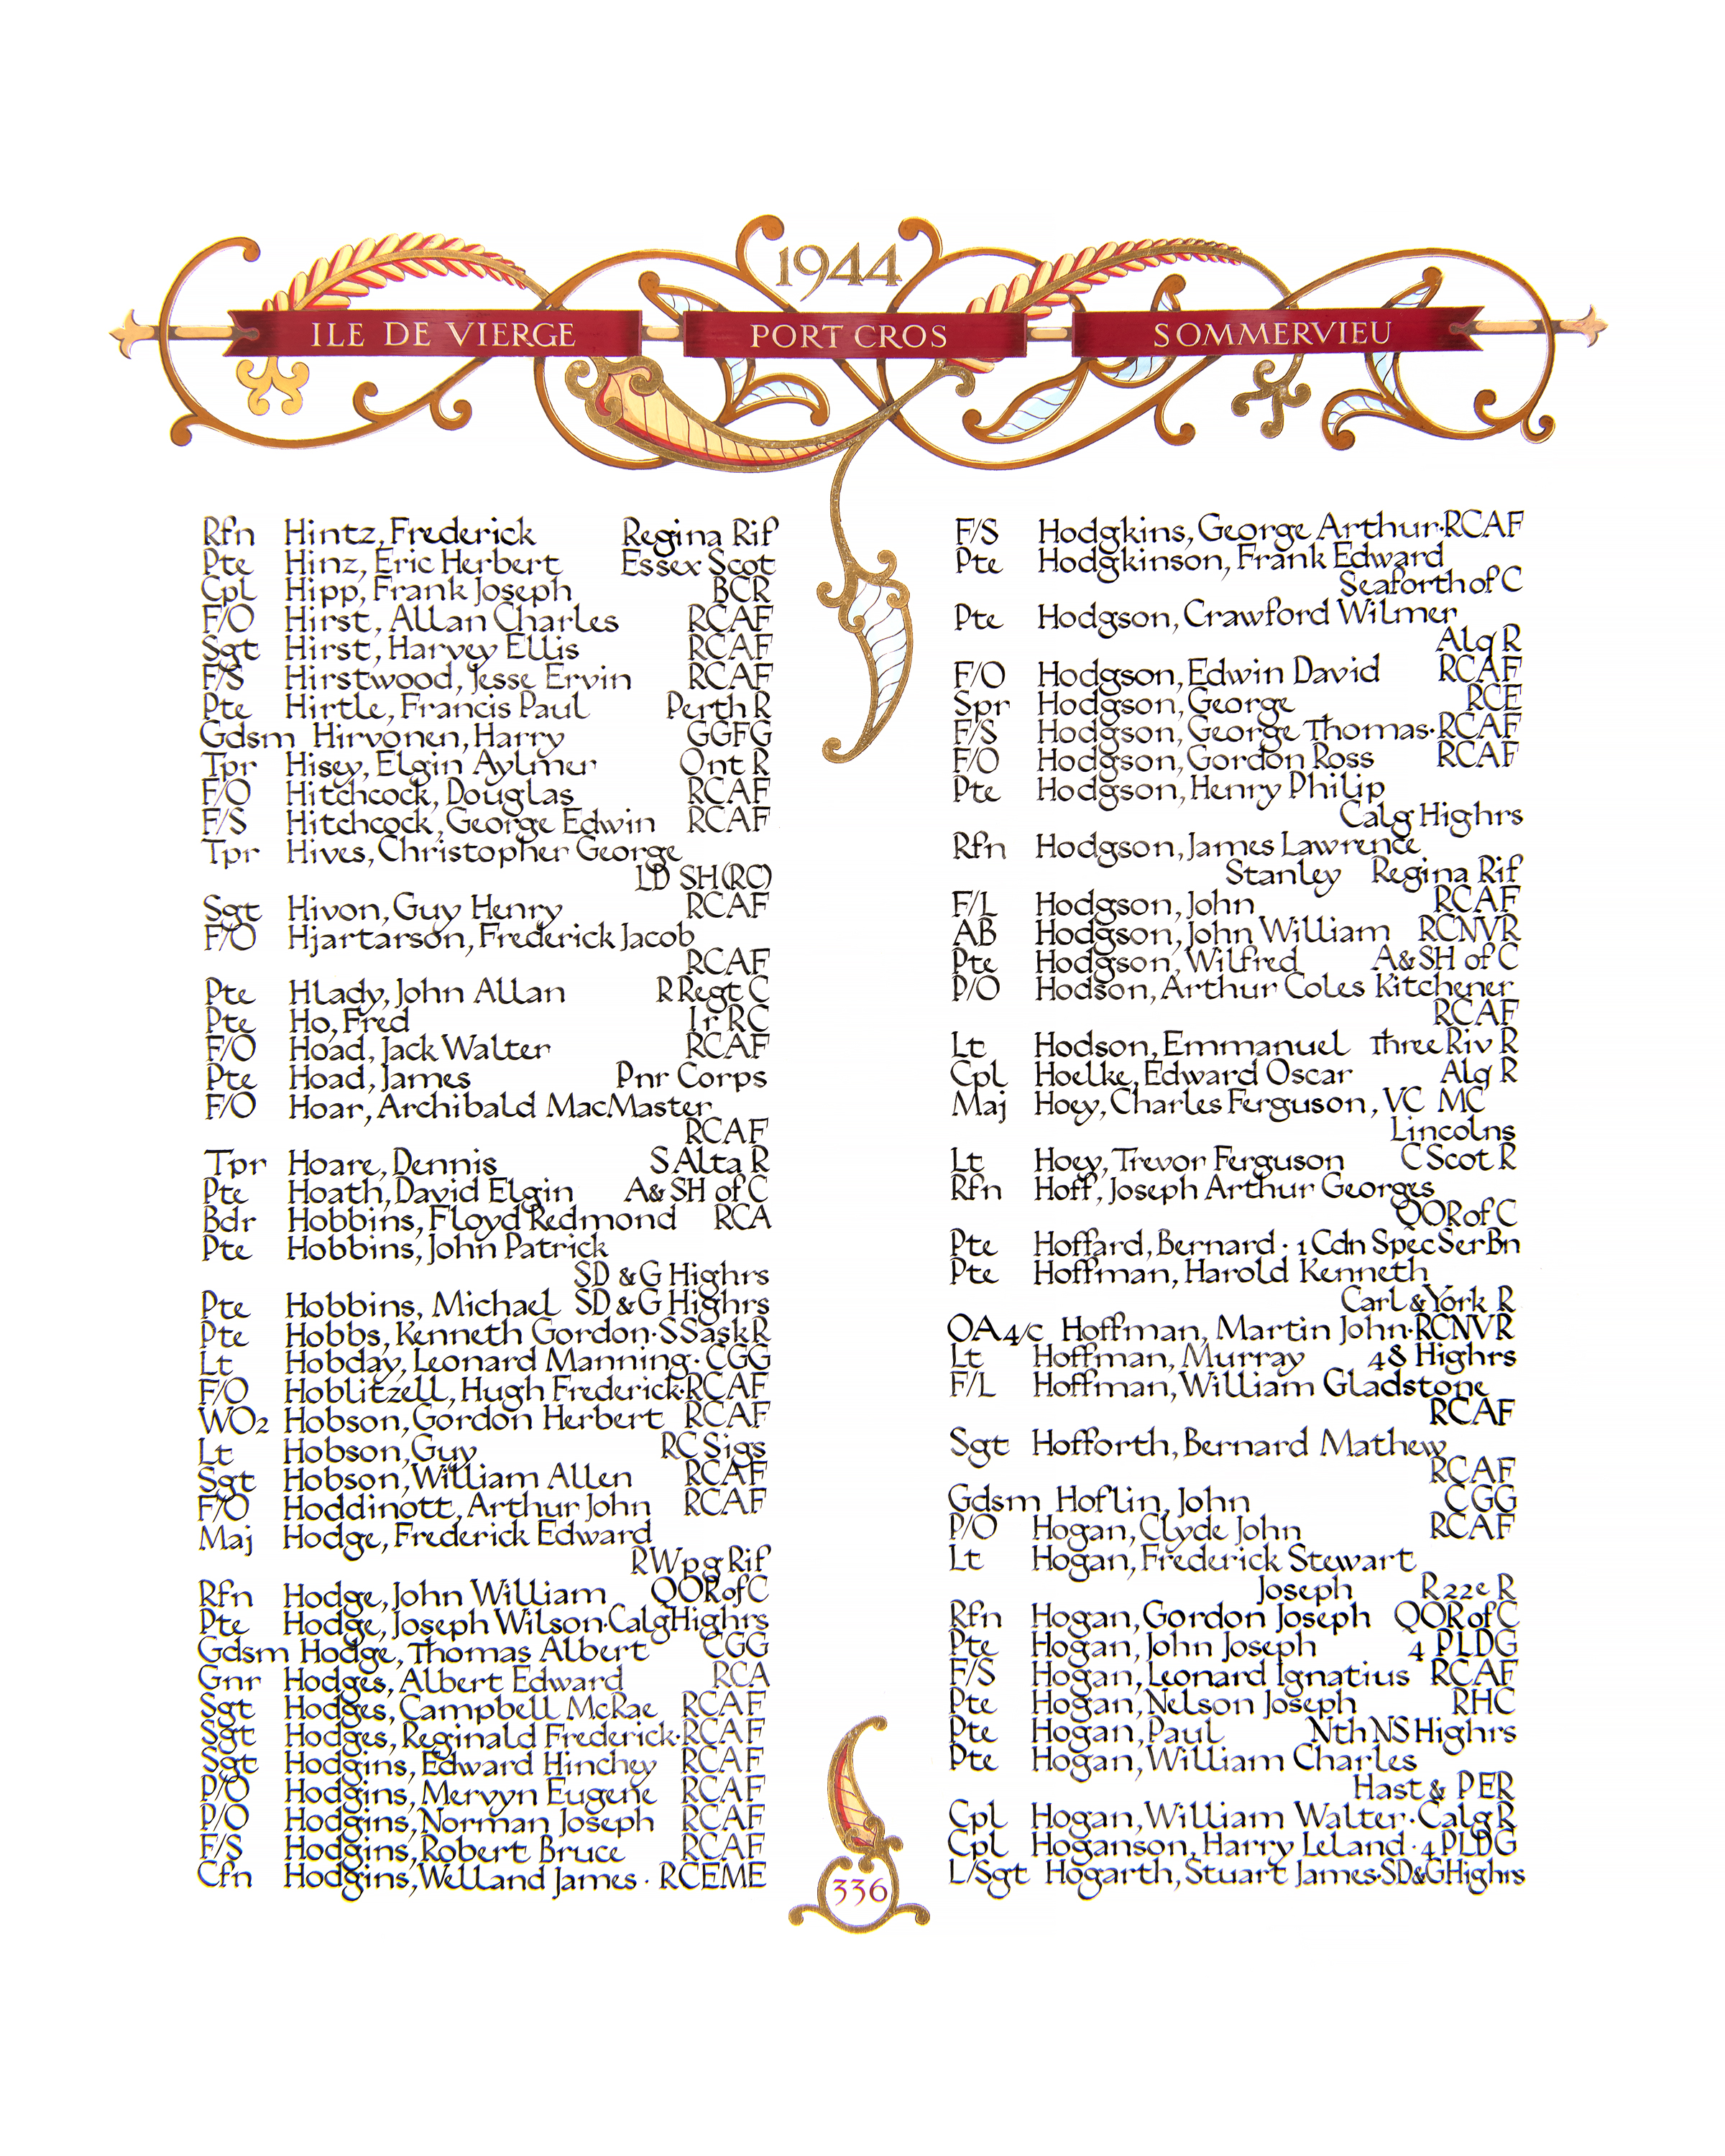 1944
ILE DE VIERGE PORT CROS SOMMERVIEU
Rfn Hintz, Frederick Regina Rif
Pte Hinz, Eric Herbert Essex Scot
Cpl Hipp, Frank Joseph BCR
F/O Hirst, Allan Charles RCAF
Sgt Hirst, Harvey Ellis RCAF
F/S Hirstwood, Jesse Ervin RCAF
Pte Hirtle, Francis Paul Perth R
Gdsm Hirvonen, Harry GGFG
Tpr Hisey, Elgin Aylmer Ont R
F/O Hitchcock, Douglas RCAF
F/S Hitchcock, George Edwin RCAF
Tpr Hives, Christopher George
LD SH(RC)
Sgt Hivon, Guy Henry RCAF
F/O Hjartarson, Frederick Jacob
RCAF
Pte Hlady, John Allan R Regt C
Pte Ho, Fred Ir RC
F/O Hoad, Jack Walter RCAF
Pte Hoad, James Pnr Corps
F/O Hoar, Archibald MacMaster
RCAF
Tpr Hoare, Dennis S Alta R
Pte Hoath, David Elgin A & SH of C
Bdr Hobbins, Floyd Redmond RCA
Pte Hobbins, John Patrick
SD & G Highrs
Pte Hobbins, Michael SD & G Highrs
Pte Hobbs, Kenneth Gordon · S Sask R
Lt Hobday, Leonard Manning · CGG
F/O Hoblitzell, Hugh Frederick · RCAF
WO2 Hobson, Gordon Herbert RCAF
Lt Hobson, Guy RC Sigs
Sgt Hobson, William Allen RCAF
F/O Hoddinott, Arthur John RCAF
Maj Hodge, Frederick Edward
R Wpg Rif
Rfn Hodge, John William QOR of C
Pte Hodge, Joseph Wilson · Calg Highrs
Gdsm Hodge, Thomas Albert CGG
Gnr Hodges, Albert Edward RCA
Sgt Hodges, Campbell McRae RCAF
Sgt Hodges, Reginald Frederick · RCAF
Sgt Hodgins, Edward Hinchey RCAF
P/O Hodgins, Mervyn Eugene RCAF
P/O Hodgins, Norman Joseph RCAF
F/S Hodgins, Robert Bruce RCAF
Cfn Hodgins, Welland James · RCEME
F/S Hodgkins, George Arthur · RCAF
Pte Hodgkinson, Frank Edward
Seaforth of C
Pte Hodgson, Crawford Wilmer
Alq R
F/O Hodgson, Edwin David RCAF
Spr Hodgson, George RCE
F/S Hodgson, George Thomas · RCAF
F/O Hodgson, Gordon Ross RCAF
Pte Hodgson, Henry Philip
Calg Highrs
Rfn Hodgson, James Lawrence
Stanley Regina Rif
F/L Hodgson, John RCAF
AB Hodgson, John William RCNVR
Pte Hodgson, Wilfred A & SH of C
P/O Hodson, Arthur Coles Kitchener
RCAF
Lt Hodson, Emmanuel Three Riv R
Cpl Hoelke, Edward Oscar Alq R
Maj Hoey, Charles Ferguson, VC MC
Lincolns
Lt Hoey, Trevor Ferguson C Scot R
Rfn Hoff, Joseph Arthur Georges
QOR of C
Pte Hoffard, Bernard · 1 Cdn Spec Ser Bn
Pte Hoffman, Harold Kenneth
Carl & York R
OA4/c Hoffman, Martin John · RCNVR
Lt Hoffman, Murray 48 Highrs
F/L Hoffman, William Gladstone
RCAF
Sgt Hofforth, Bernard Mathew
RCAF
Gdsm Hoflin, John CGG
P/O Hogan, Clyde John RCAF
Lt Hogan, Frederick Stewart
Joseph R22e R
Rfn Hogan, Gordon Joseph QOR of C
Pte Hogan, John Joseph 4 PLDG
F/S Hogan, Leonard Ignatius RCAF
Pte Hogan, Nelson Joseph RHC
Pte Hogan, Paul Nth NS Highrs
Pte Hogan, William Charles
Hast & PER
Cpl Hogan, William Walter · Calg R
Cpl Hoganson, Harry Leland · 4 PLDG
L/Sgt Hogarth, Stuart James · SD&G Highrs
336